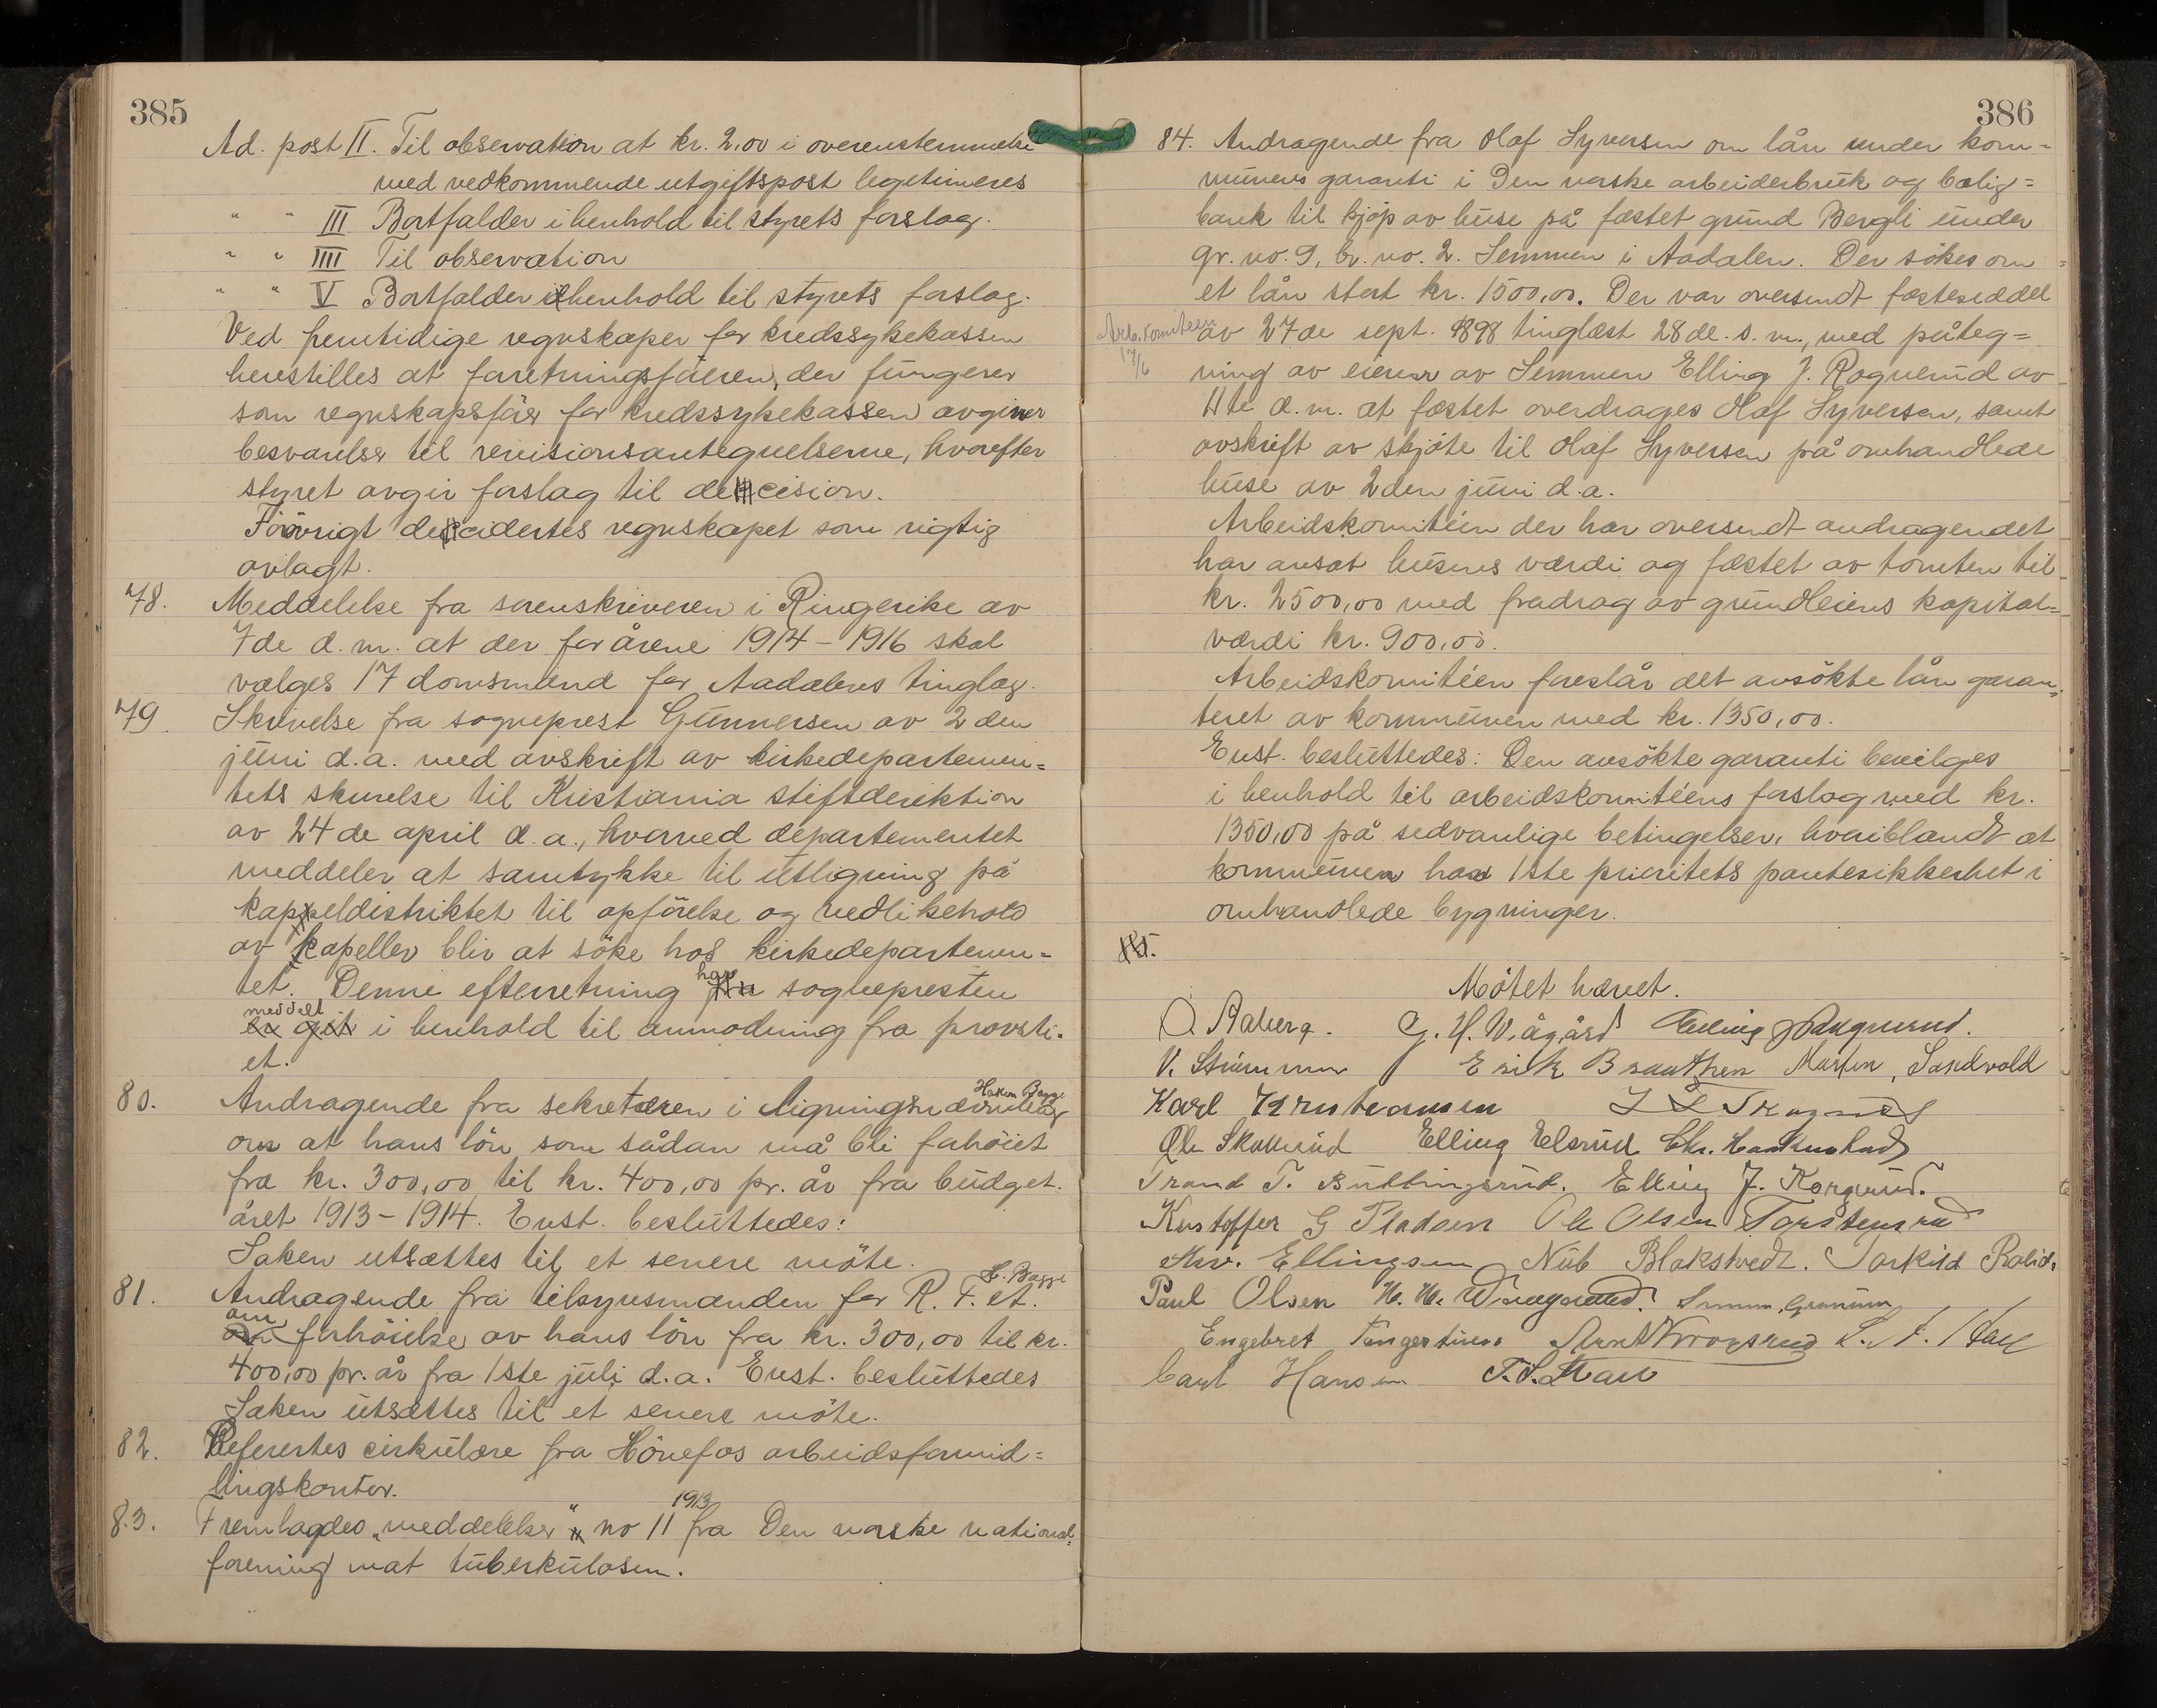 385
Ad. post II. Til observation at kr. 2,00 i overenstemmelse
med vedkommende utgiftspost legitimeres
" " III Bortfalder i henhold til styrets forslag.
" " IIII Til observation
" " V Bortfalder i henhold til styrets forslag.
Ved fremtidige regnskaper for kredssykekassen
henstilles at forretningsföreren, der fungerer
som regnskapsförer for kredssykekassen avgiver
besvarelser til revisionsantegnelserne, hvorefter
styret avgir forslag til decision.
Forövrigt decidertes regnskapet som rigtig
avlagt.
78. Meddelelse fra sorenskriveren i Ringerike av
7de d.m. at der for årene 1914-1916 skal
vælges 17 domsmænd for Aadalens tinglag.
79. Skrivelse fra sogneprest Gunnersen av 2den
juni d.a. med avskrift av kirkedepartemen=
tets skrivelse til Kristiania stiftdirektion
av 24de april d.a., hvorved departementet
meddeler at samtykke til utligning på
kapeldistriktet til opförelse og vedlikehold
av kapeller blir at söke hos kirkedepartemen=
tet. Denne efterretning har sognepresten
meddelt i henhold til anmodning fra provsti-
et.
80. Andragende fra sekretæren i ligningsnævnden Hakon Bagge
om at hans lön som sådan må bli forhöiet
fra kr. 300,00 til kr. 400,00 pr. år fra budget-
året 1913-1914. Enst. besluttedes:
Saken utsættes til et senere möte.
81. Andragende fra tilsynsmanden for R. F. et. H. Bagge
om forhöielse av hans lön fra kr. 300,00 til kr.
400,00 pr. år fra 1ste juli d.a. Enst. besluttedes
Saken utsættes til et senere möte.
82. Refererтes cirkulære fra Hönefos arbeidsformid=
lingskontor.
83. Fremlagdes „meddelelser" no 11 1913 fra Den norske national=
forening mot tuberkulosen.
386
84. Andragende fra Olaf Syversen om lån under kom=
munens garanti i Den norske arbeiderbruk og bolig=
bank til kjöp av huse på fæstet grund Bergli under
gr. no. 9, br. no. 2. Semmen i Aadalen. Der sökes om
et lån stort kr. 1500,00. Der var oversendt fæsteseddel
Arb. komiteen 17/6
av 27de sept. 1898 tinglæst 28de s.m., med påteg=
ning av eieren av Semmen Elling J. Rognerud av
11te d.m. at fæstet overdrages Olaf Syversen, samt
avskrift av skjöte til Olaf Syversen på omhandlede
huse av 2den juni d.a.
Arbeidskomitéen der har oversendt andragendet
har ansat husenes værdi og fæstet av tomten til
kr. 2500,00 med fradrag av grundleiens kapital=
værdi kr. 900,00.
Arbeidskomitéen foreslår det ansökte lån garan=
teret av kommunen med kr. 1350,00.
Enst. besluttedes: Den ansökte garanti bevilges
i henhold til arbeidskomitéens forslag med kr.
1350,00 på sedvanlige betingelser, hvoriblandt at
kommunen har 1ste prioritets pantesikkerhet i
omhandlede bygninger.
Mötet hævet.
O. Raberg. G. H. Vågård
V. Strømmen Erik Braathen Martin Sandvold
Karl
Ole Skollerud Elling Elsrud Chr.
Trond T. Bullingsrud. Elling J. Korgerud.
Kristoffer G Pladsen Ole Olsen Torstensrud
Ellingsen Nub Blakstvedt. Torkild Ralid.
Paul Olsen H. H.
Engebret
Carl Hansen T. S.